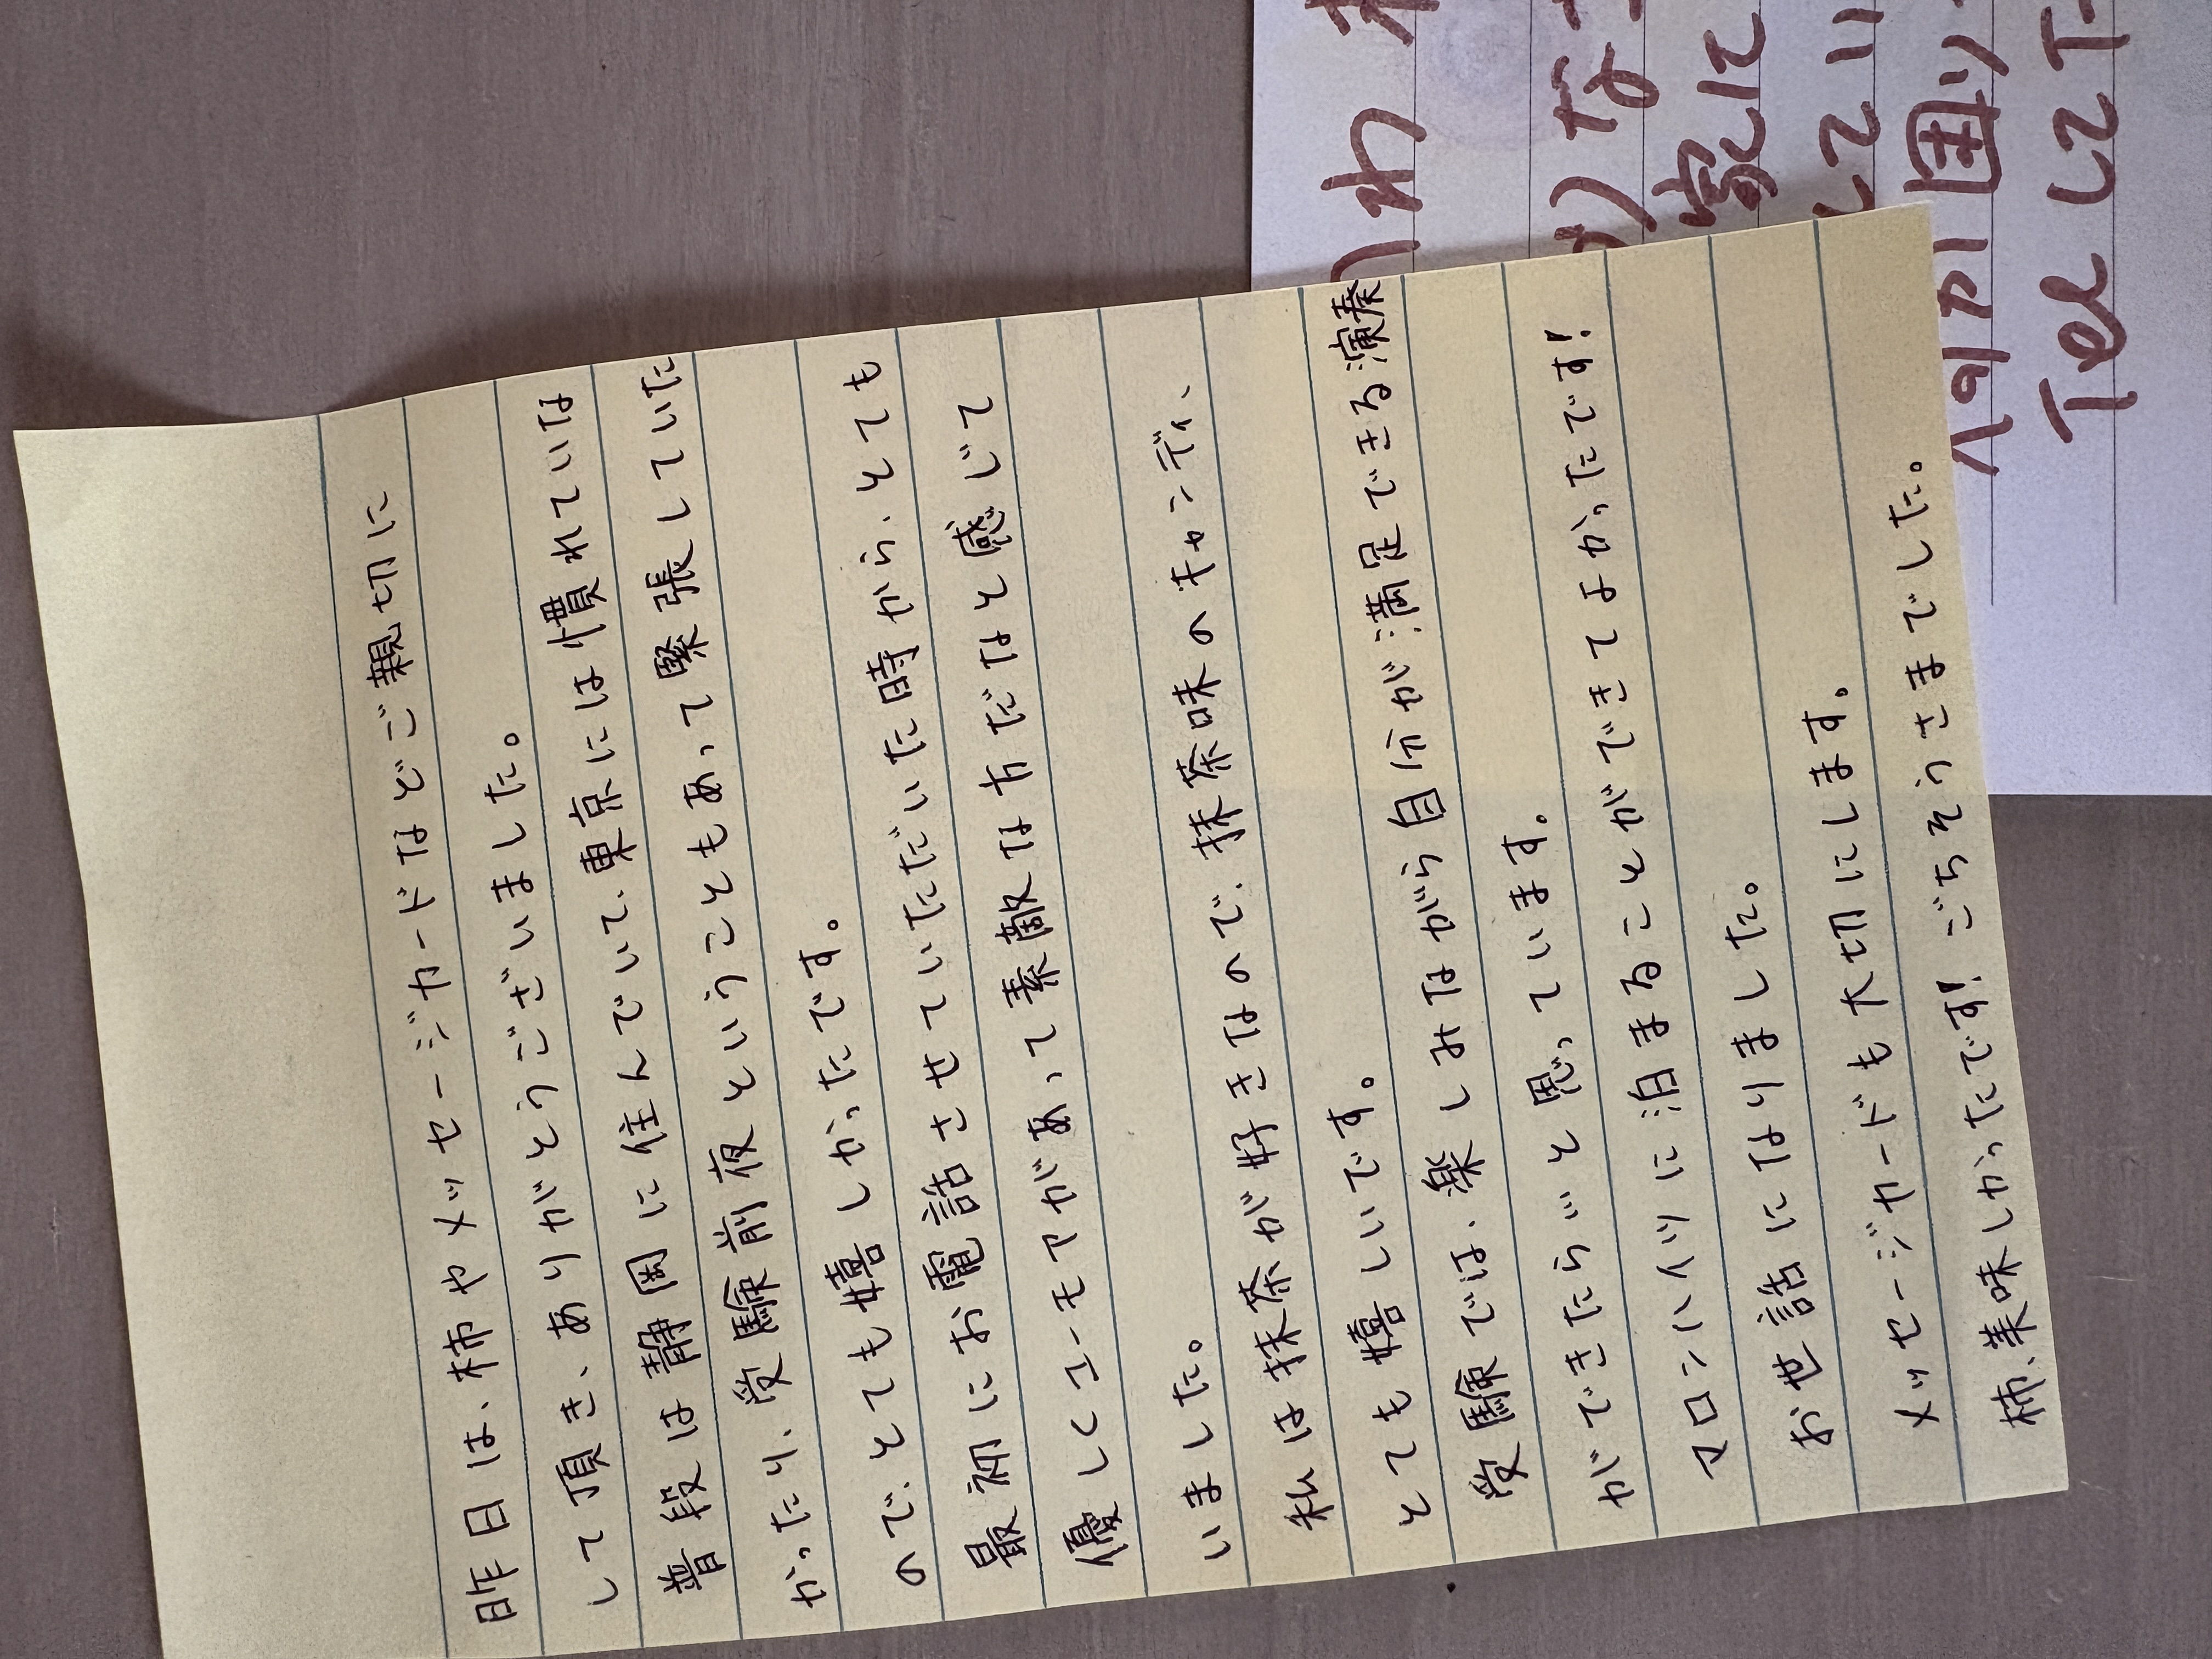 昨日は、柿やメッセージカードなどご親切に
して頂き、ありがとうございました。
普段は静岡に住んでいて、東京には慣れていな
かったり、受験前夜ということもあって緊張していた
ので、とても嬉しかったです。
最初にお電話させていただいた時から、とても
優しくユーモアがあって素敵な方だなと感じて
いました。
私は抹茶が好きなので、抹茶味のキャンディ、
とても嬉しいです。
受験では、楽しみながら自分が満足できる演奏
ができたらいいと思っています。
に泊まることができてよかったです!
お世話になりました。
メッセージカードも大切にします。
柿、美味しかったです!ごちそうさまでした。
Tel して下